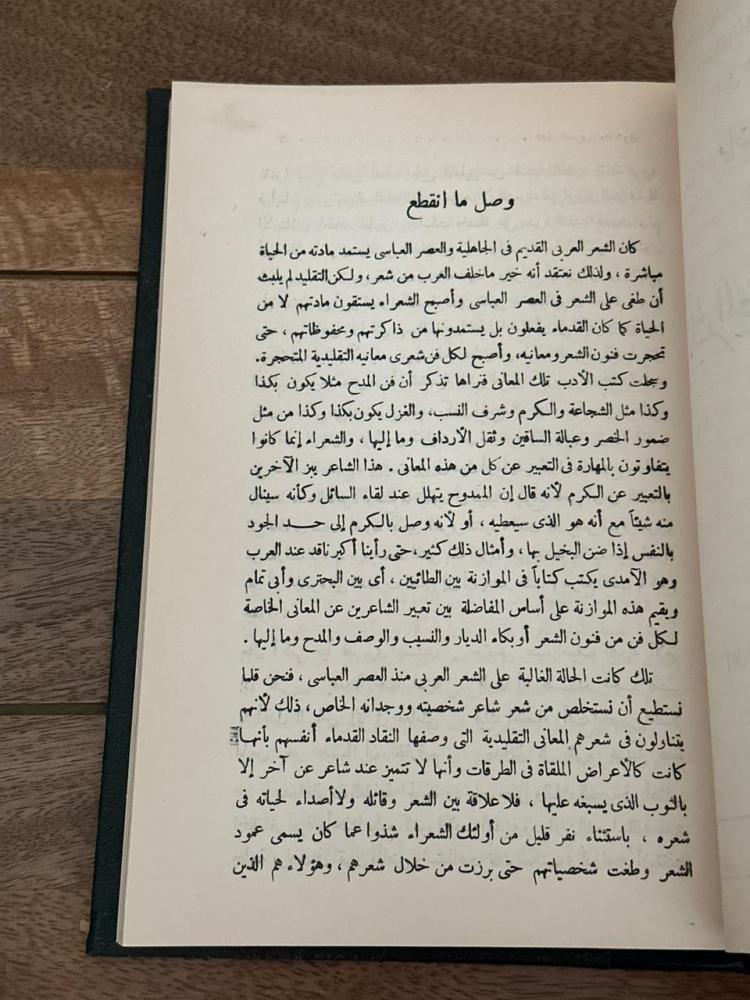 وصل ما انقطع
كان الشعر العربى القديم فى الجاهلية والعصر العباسى يستمد مادته من الحياة
مباشرة ، ولذلك نعتقد أنه خير ماخلف العرب من شعر ، ولكن التقليد لم يلبث
أن طغى على الشعر فى العصر العباسى وأصبح الشعراء يستقون مادتهم لا من
الحياة كما كان القدماء يفعلون بل يستمدونها من ذاكرتهم ومحفوظاتهم ، حتى
تحجرت فنون الشعر ومعانيه، وأصبح لكل فن شعرى معانيه التقليدية المتحجرة.
وسجلت كتب الأدب تلك المعانى فتراها تذكر أن فن المدح مثلا يكون بكذا
وكذا مثل الشجاعة والكرم وشرف النسب، والغزل يكون بكذا وكذا من مثل
ضمور الخصر وعبالة الساقين وثقل الأرداف وما إليها ، والشعراء إنما كانوا
يتفاوتون بالمهارة فى التعبير عن كل من هذه المعانى . هذا الشاعر يبز الآخرين
بالتعبير عن الكرم لأنه قال إن الممدوح يتهلل عند لقاء السائل وكأنه سينال
منه شيئاً مع أنه هو الذى سيعطيه ، أو لأنه وصل بالكرم إلى حد الجود
بالنفس إذا ضن البخيل بها ، وأمثال ذلك كثير، حتى رأينا أكبر ناقد عند العرب
وهو الآمدى يكتب كتاباً فى الموازنة بين الطائيين ، أى بين البحترى وأبى تمام
ويقيم هذه الموازنة على أساس المفاضلة بين تعبير الشاعرين عن المعانى الخاصة
لكل فن من فنون الشعر أو بكاء الديار والنسيب والوصف والمدح وما إليها .
تلك كانت الحالة الغالبة على الشعر العربى منذ العصر العباسى ، فنحن قلما
نستطيع أن نستخلص من شعر شاعر شخصيته ووجدانه الخاص، ذلك لأنهم
يتناولون فى شعرهم المعانى التقليدية التى وصفها النقاد القدماء أنفسهم بأنها
كانت كالأعراض الملقاة فى الطرقات وأنها لا تتميز عند شاعر عن آخر إلا
بالثوب الذى يسبغه عليها ، فلاعلاقة بين الشعر وقائله ولاأصداء لحياته فى
شعره ، باستثناء نفر قليل من أولئك الشعراء شذوا عما كان يسمى عمود
الشعر وطغت شخصياتهم حتى برزت من خلال شعرهم ، وهؤلاء هم الذين